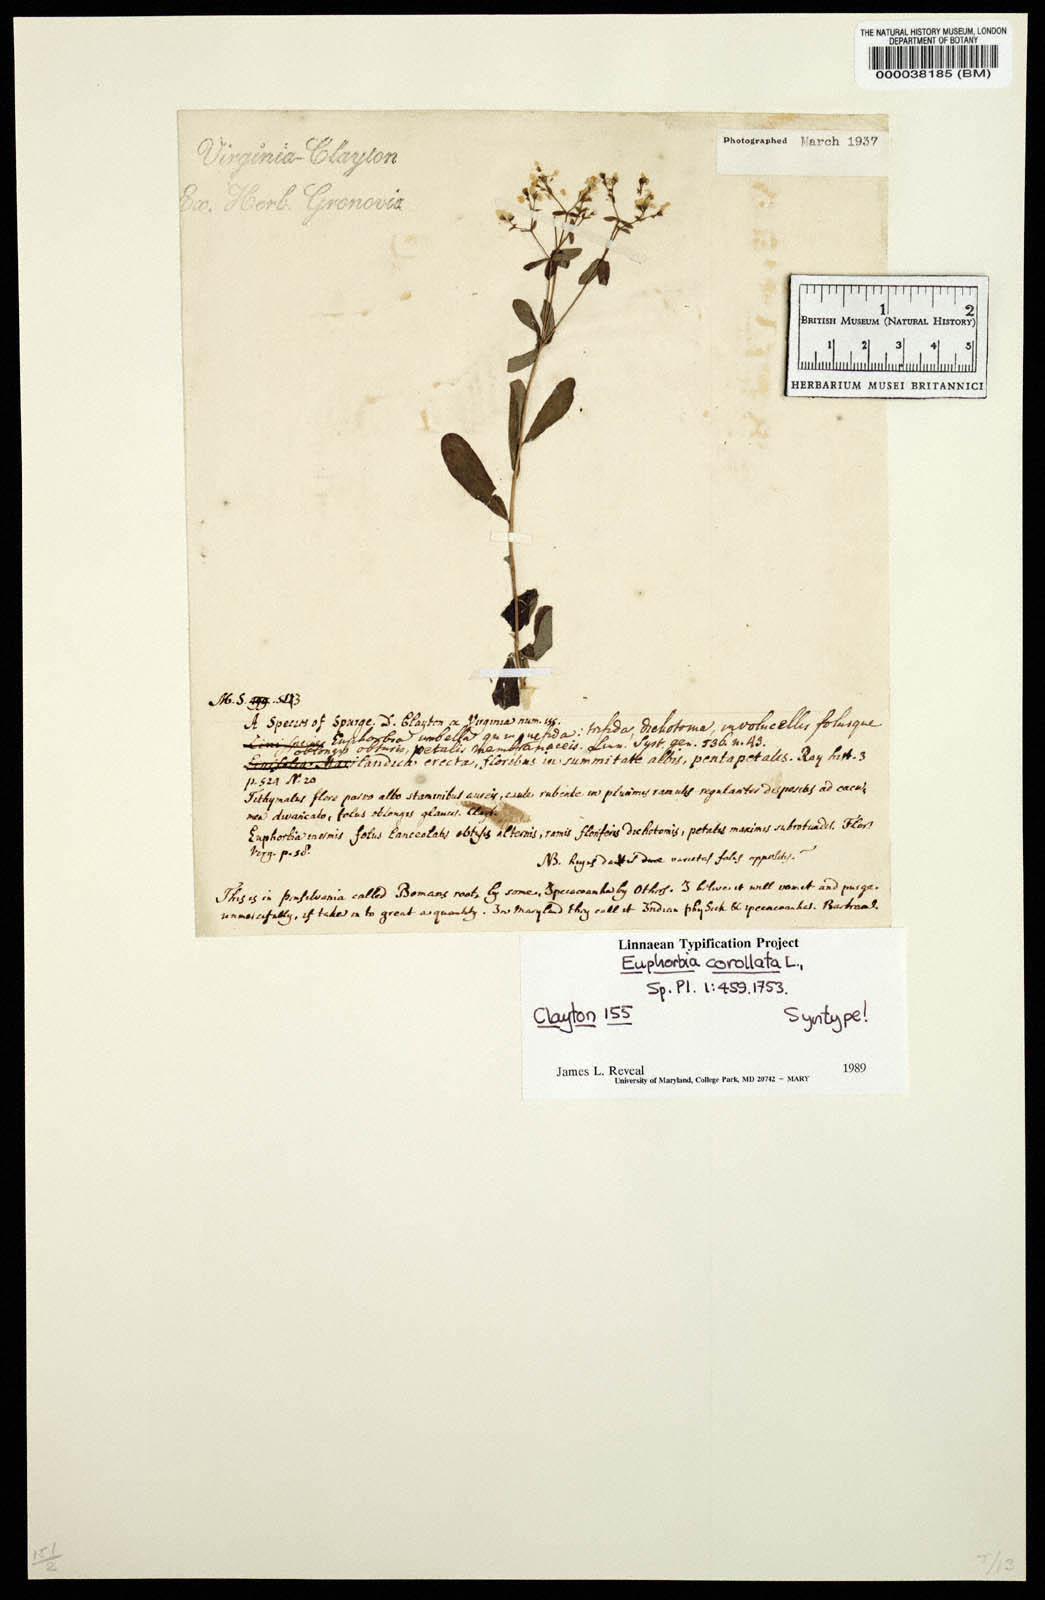 THE NATURAL HISTORY MUSEUM, LONDON
DEPARTMENT OF BOTANY
000038185 (BM)
Virginia-Clayton
Ex. Herb. Gronovii
Photographed March 1937
1 2
BRITISH MUSEUM (NATURAL HISTORY)
1 2 3 4 5
HERBARIUM MUSEI BRITANNICI
M.S.
A Species of Spurge. D. Clayton ex Virginia num. 155.
Euphorbia umbella quinquefida: trifida, dichotoma, involucellis foliisque
oblongis obtusis, petalis membranaceis. Linn. Syst. gen. 536. n. 43.
erecta, floribus in summitate albis, pentapetalis. Ray hist. 3
p. 521 N. 20
Tithymalus flore parvo albo staminibus caule rubente in plurimos ramulos regulariter dispositos ad cacu:
men divaricato, foliis oblongis glaucis. Clayt.
Euphorbia inermis foliis lanceolatis obtusis alternis, ramis floriferis dichotomis, petalis maximis subrotundis. Flor.
Virg. p. 58.
NB. hujus datur varietas foliis oppositis.
This is in pensilvania called Bomans root, by some, Ipecacoanha by Othrs. I beleve it will vomit and purge.
unmercifully, if taken in to great a quantity. In Maryland they call it Indian phySick & ipecacoanha. Bartram.
Linnaean Typification Project
Euphorbia corollata L.,
Sp. Pl. 1:459. 1753.
Clayton 155 Syntype!
James L. Reveal 1989
University of Maryland, College Park, MD 20742 – MARY
151/2